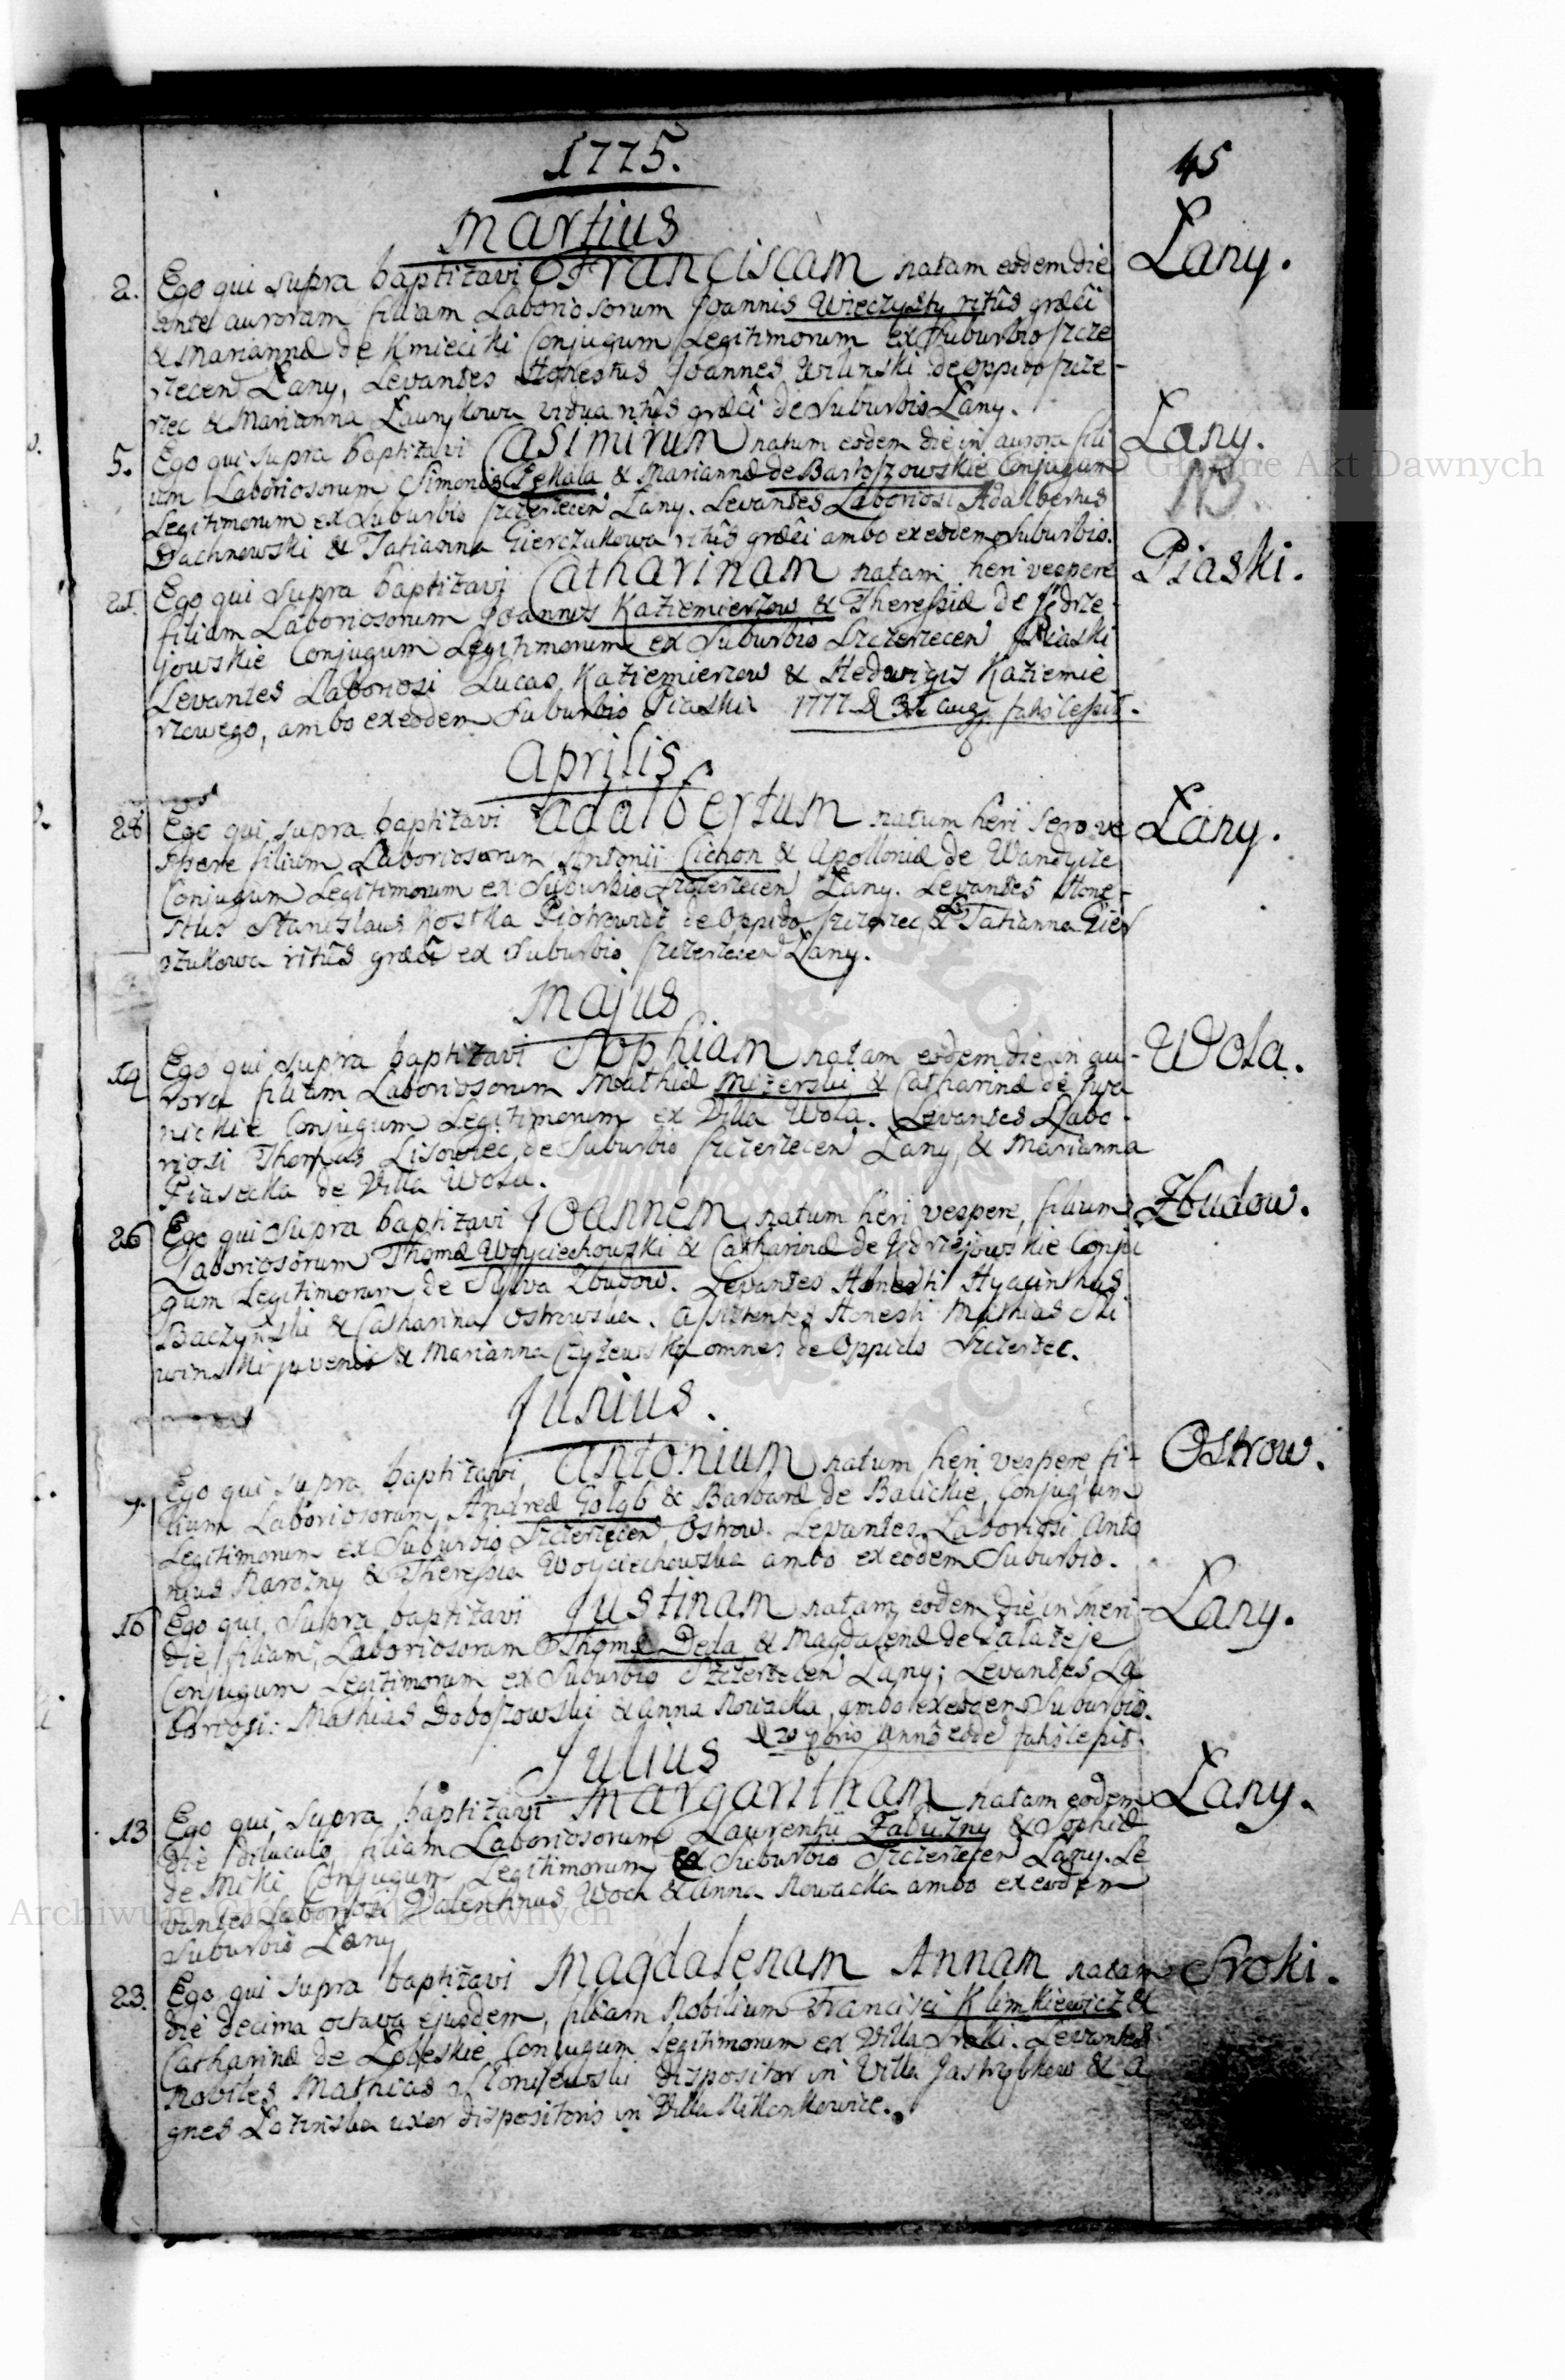 1775.
45
Martius
Łany.
2. Ego qui supra baptizavi Franciscam natam eodem die
ante auroram filiam Laboriosorum Joannis Wieczysty ritûs græci
& Mariannæ de Kmieciki Conjugum Legitimorum ex Suburbio Szcze
rzecen Łany, Levantes Honestus Joannes Wilinski de Oppido Szcze-
rzec & Marianna Ławrykowa vidua ritûs græci de Suburbio Łany.
Łany.
5. Ego qui supra baptizavi Casimirum natum eodem die in aurora fili
um Laboriosorum Simonis Pękala & Mariannæ de Bartoszowskie Conjugum
NB.
Legitimorum ex Suburbio Szczerzecen Łany. Levantes Laboriosi Adalbertus
Dachnowski & Tatianna Gierczukowa ritûs græci ambo ex eodem Suburbio.
Piaski.
21. Ego qui supra baptizavi Catharinam natam heri vespere
filiam Laboriosorum Joannis Kaziemierzow & Theresiæ de Jędrze-
jowskie Conjugum Legitimorum ex Suburbio Szczerzecen Piaski
Levantes Laboriosi Lucas Kaziemierzow & Hedwigis Kaziemie
rzowego, ambo ex eodem Suburbio Piaski 1777 D 31 aug.
Aprilis
Łany.
28 Ego qui supra baptizavi Adalbertum natum heri sero ve
spere filium Laboriosorum Antonii Cichon & Apolloniæ de Wandycze
Conjugum Legitimorum ex Suburbio Szczerzecen Łany. Levantes Hone-
stus Stanislaus Kostka Piotrowicz de Oppido Szczerzec & Tatianna Gier
czukowa ritûs græci ex Suburbio Szczerzecen Łany.
Majus
Wola.
19 Ego qui supra baptizavi Sophiam natam eodem die in au-
rora filiam Laboriosorum Mathiæ Mizerski & Catharinæ de Iwa
nickie Conjugum Legitimorum ex Villa Wola. Levantes Labo-
riosi Thomas Lisowiec de Suburbio Szczerzecen Łany, & Marianna
Piasecka de Villa Wola.
Zbudow.
26 Ego qui supra baptizavi Joannem natum heri vespere, filium
Laboriosorum Thomæ Woyciechowski & Catharinæ de Jędrzejowskie Conju
gum Legitimorum de Sylva Zbudow. Levantes Honesti Hyacinthus
Baczynski & Catharina Ostrowska. Assistentes Honesti Mathias Sli
winski juvenis & Marianna Czyżewska omnes de Oppido Szczerzec.
Junius.
Ostrow.
9. Ego qui supra baptizavi Antonium natum heri vespere fi-
lium Laboriosorum Andreæ Gołąb & Barbaræ de Balickie Conjugum
Legitimorum ex Suburbio Szczerzecen Ostrow. Levantes Laboriosi Anto
nius Narożny & Theresia Woyciechowska ambo ex eodem Suburbio.
Łany.
16 Ego qui supra baptizavi Justinam natam eodem die in meri-
die filiam Laboriosorum Thomæ Deda & Magdalenæ de Pałażeje
Conjugum Legitimorum ex Suburbio Szczerzecen Łany; Levantes La
boriosi: Mathias Doboszowski & Anna Nowacka, ambo ex eodem Suburbio.
Julius
Łany.
13 Ego qui supra baptizavi Margaritham natam eodem
die diluculo filiam Laboriosorum Laurentii Zabużny & Sophiæ
de Miki Conjugum Legitimorum ex Suburbio Szczerzecen Łany. Le
vantes Laboriosi Valentinus Woch & Anna Nowacka ambo ex eodem
Suburbio Łany
Sroki.
23. Ego qui supra baptizavi Magdalenam Annam natam
die decima octava ejusdem, filiam Nobilium Francisci Klimkiewicz &
Catharinæ de Łobeskie Conjugum Legitimorum ex Villa Sroki. Levantes
Nobiles Mathias Słoniewski dispositor in Villa Jastrzębkow & A
gnes Łozinska uxor dispositoris in Villa Nikonkowice.
Archiwum Główne Akt Dawnych